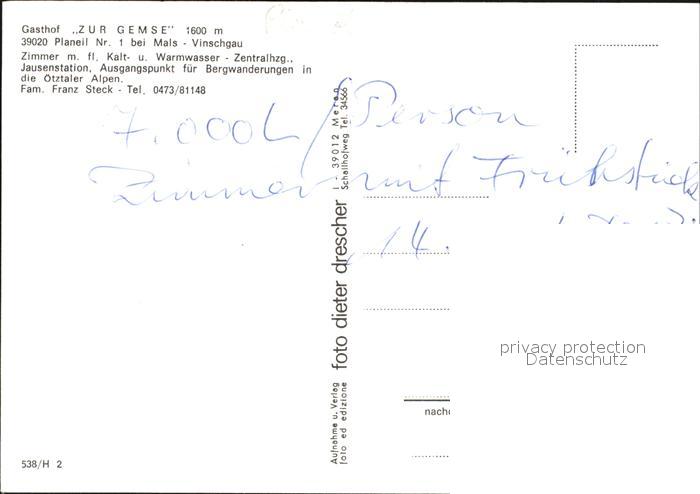 Gasthof „ZUR GEMSE" 1600 m
39020 Planeil Nr. 1 bei Mals - Vinschgau
Zimmer m. fl. Kalt- u. Warmwasser - Zentralhzg.,
Jausenstation, Ausgangspunkt für Bergwanderungen in
die Ötztaler Alpen.
Fam. Franz Steck - Tel. 0473/81148
7.000L/Person
Zimmer mit Frühstück
14.
Aufnahme u. Verlag
foto ed edizione
foto dieter drescher
I 39012 Meran
Schallhofweg Tel. 34566
privacy protection
Datenschutz
nach
538/H 2